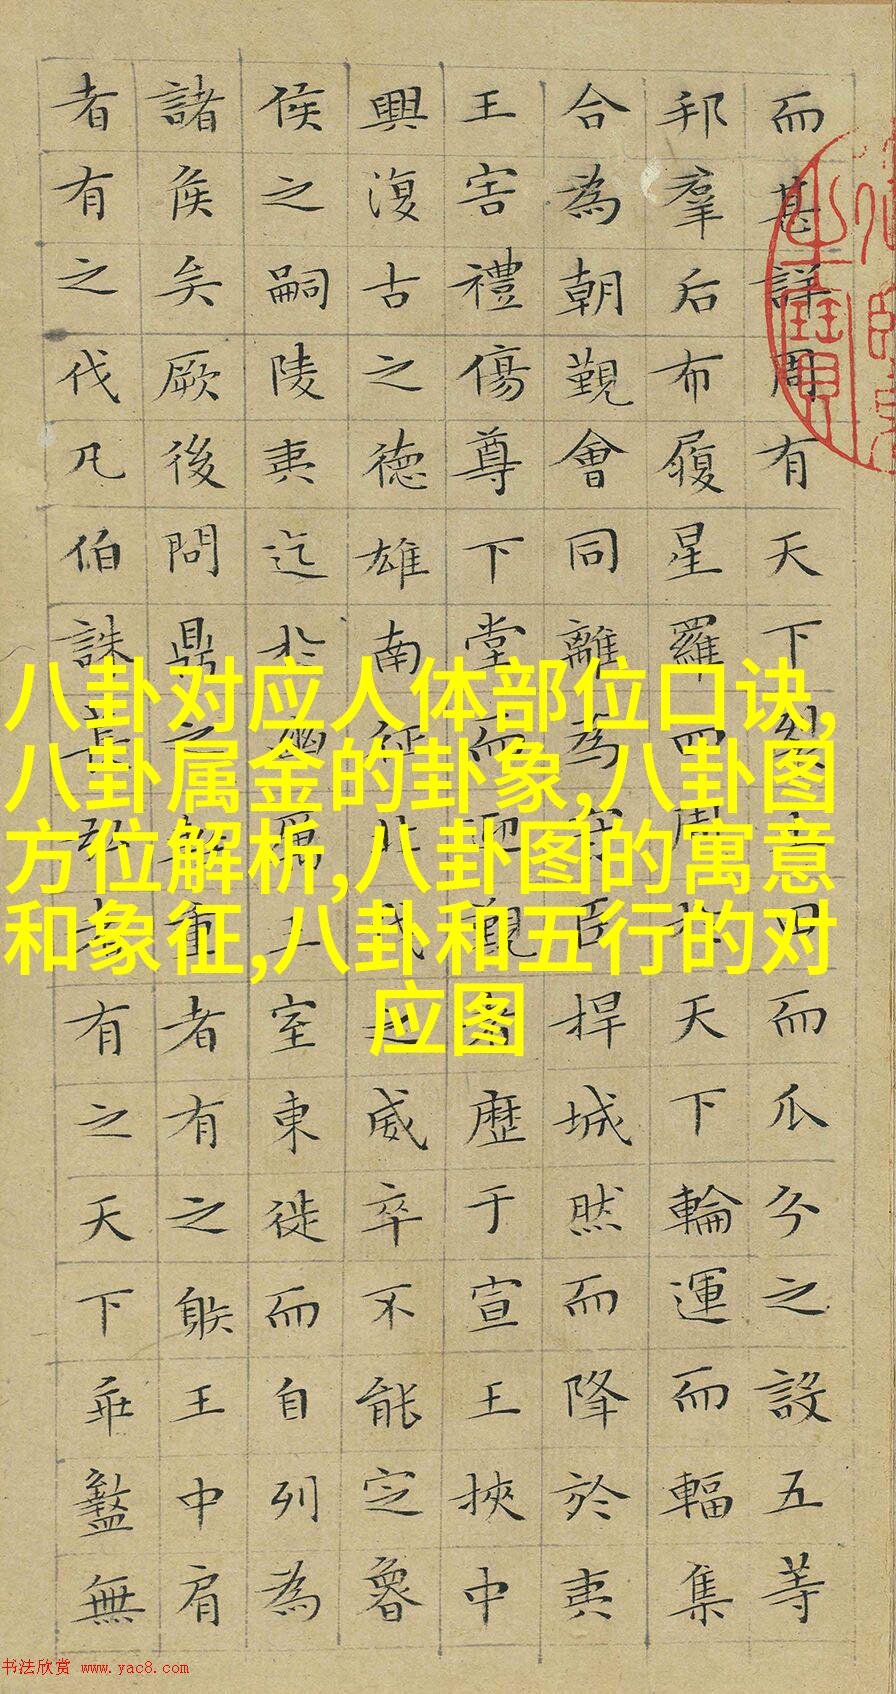 而甚詳周有天下裂土田而瓜分之設五等
邦羣后布履星羅四周於天下輪運而輻集
合為朝覲會同離為守臣捍城然而降於夷
王害禮傷尊下堂而迎覲者歷于宣王挾中
興復古之德雄南征北伐之威卒不能定魯
侯之嗣陵夷迄於幽厲王室東徙而自列為
諸侯矣厥後問鼎之輕重者有之射王中肩
者有之伐凡伯誅萇弘者有之天下乖盭無
八卦对应人体部位口诀,
八卦属金的卦象,八卦图
方位解析,八卦图的寓意
和象征,八卦和五行的对
应图
书法欣赏 www.yac8.com